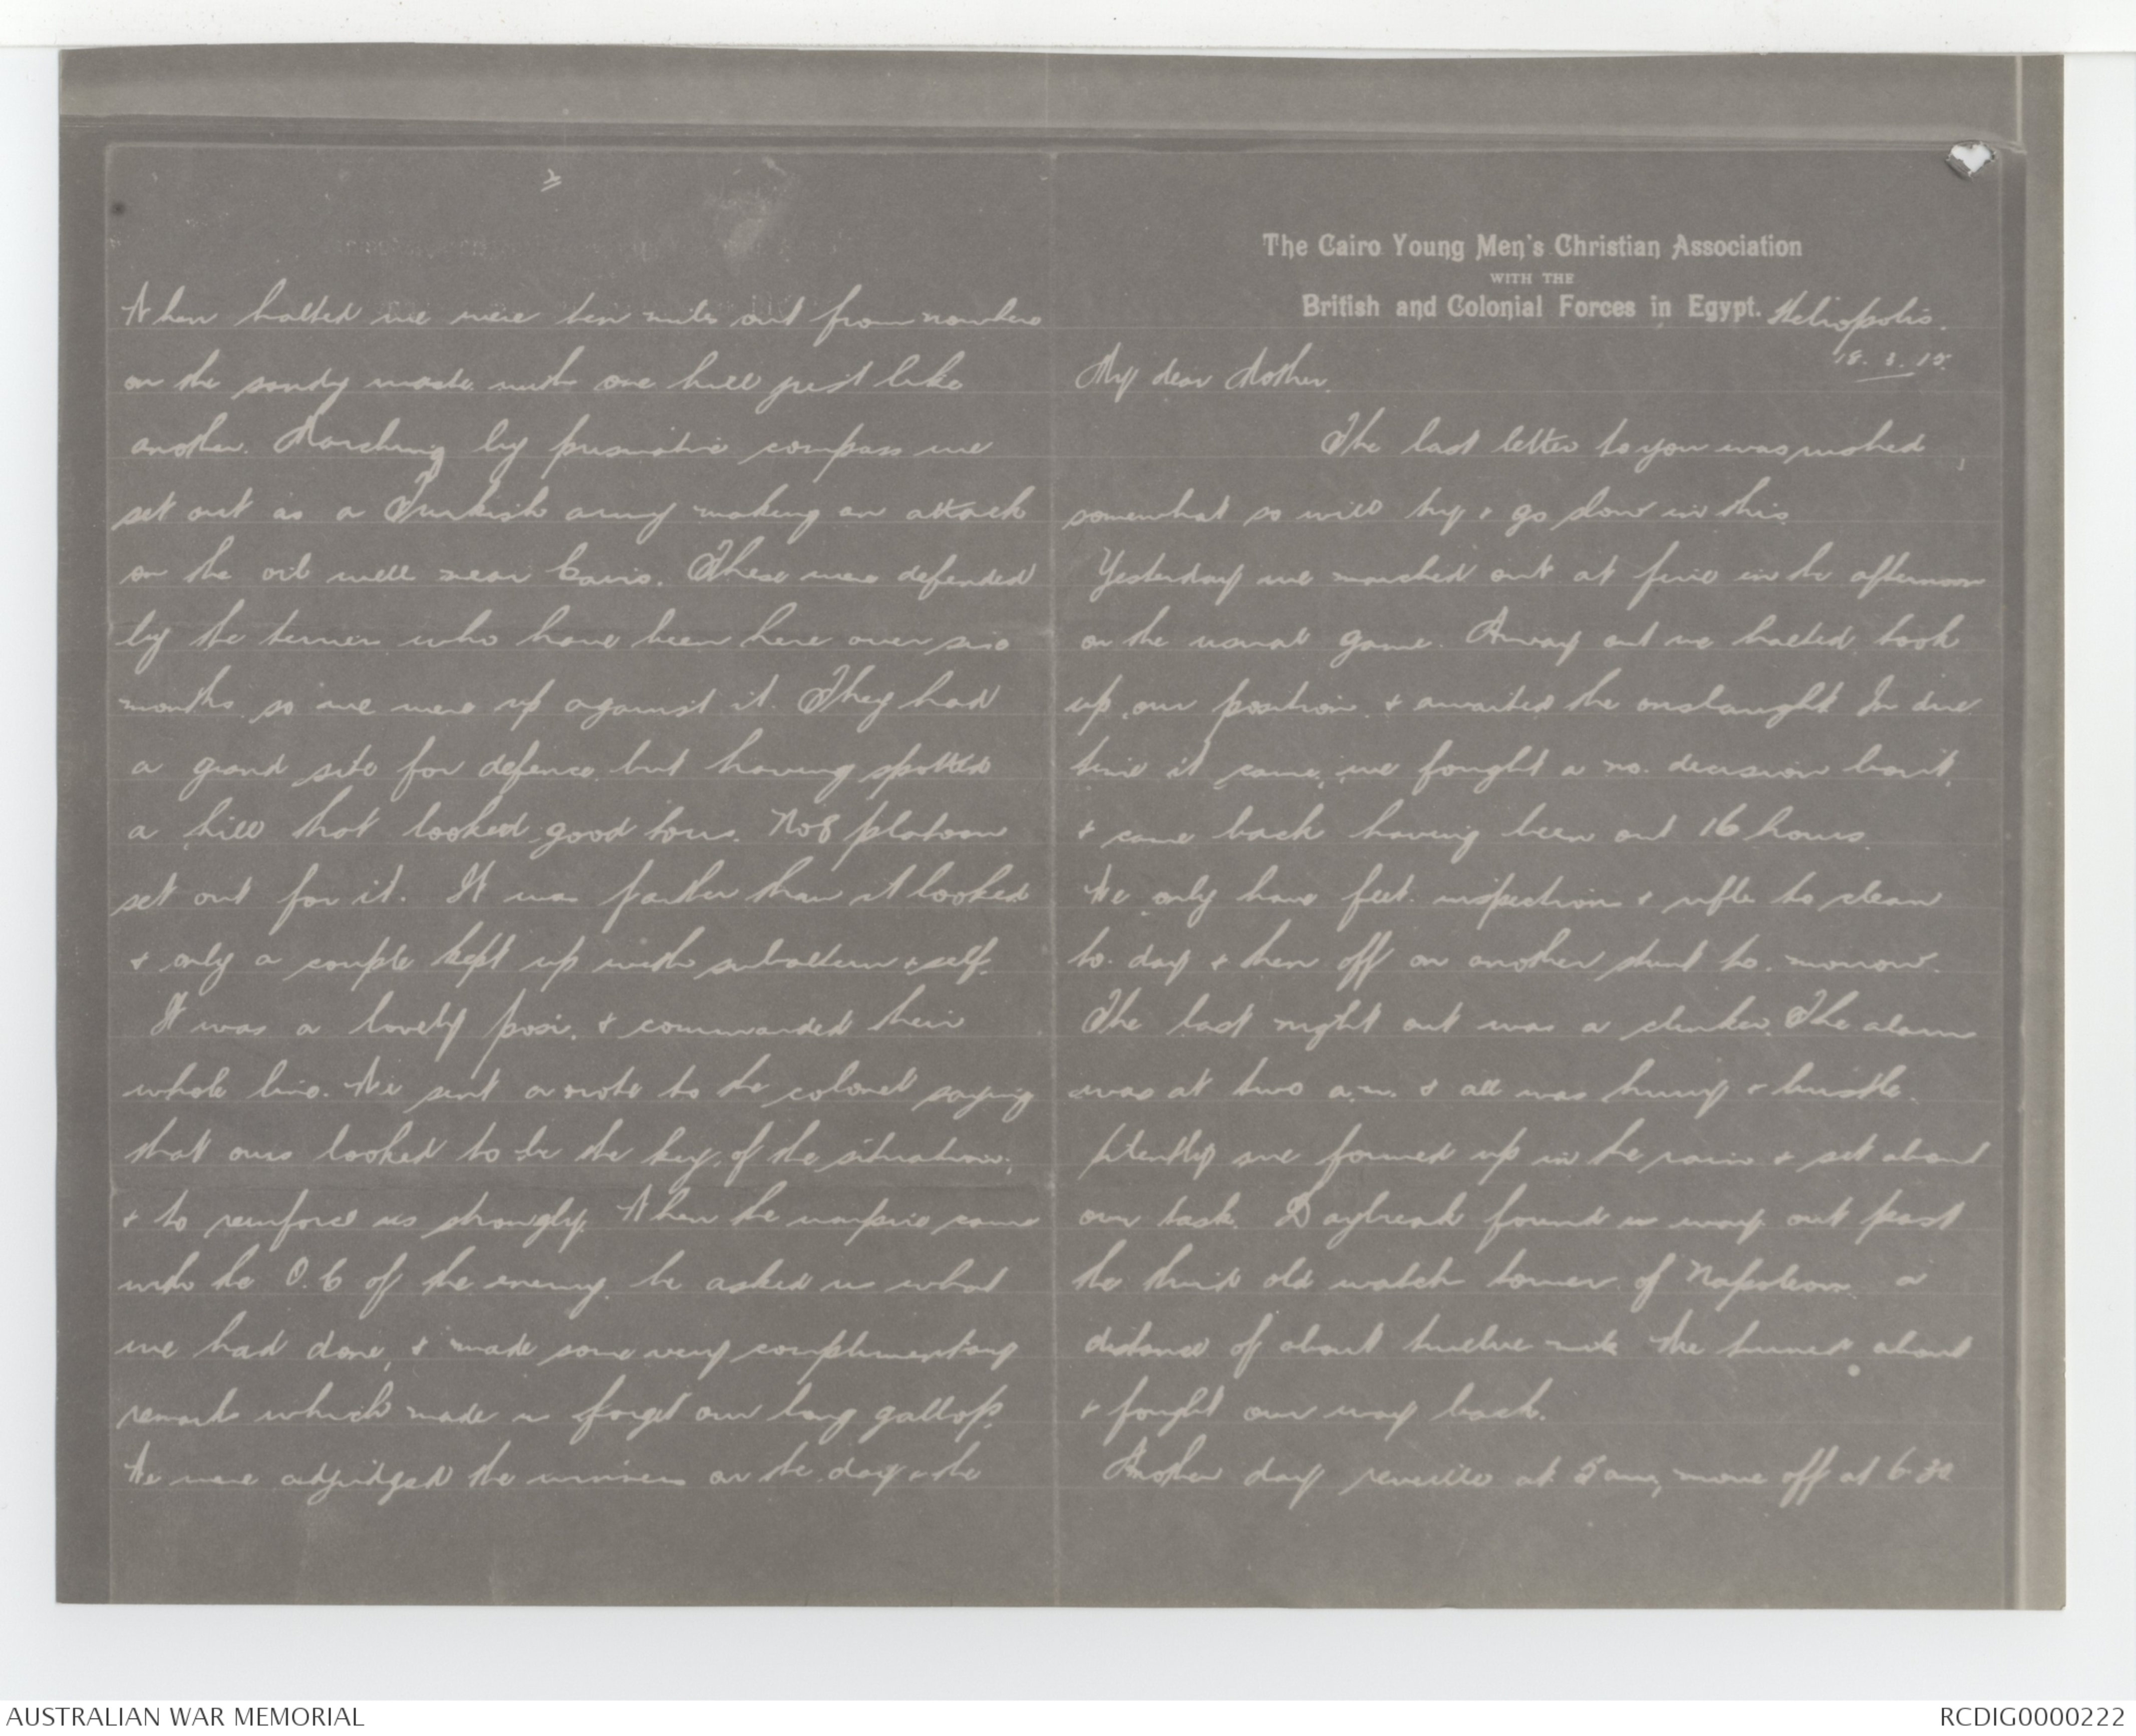 The Cairo Young Men's Christian Association
WITH THE
British and Colonial Forces in Egypt.
Heliopolis.
18. 3. 15.
My dear Mother.
The last letter to you was rushed
somewhat so will try & go slow in this.
Yesterday we marched out at five in the afternoon
on the usual game. Away out we halted, took
up our position & awaited the onslaught. In due
time it came, we fought a no. decision bout,
& came back having been out 16 hours.
We only have feet inspection & rifle to clean
to. day & then off on another stunt to. morrow.
The last night out was a clinker. The alarm
was at two a.m. & all was hurry & bustle.
we formed up in the rain & set about
our task. Daybreak found us way out past
the third old watch tower of Napoleon a
distance of about twelve mile. We turned about
& fought our way back.
Another day reveille at 5 am, move off at 6.30
2
When halted we were ten miles out from nowhere
on the sandy waste with one hill just like
another. Marching by prismatic compass we
set out as a Turkish army making an attack
on the oil well near Cairo. These were defended
by the terriers who have been here over six
months, so we were up against it. They had
a grand site for defence but having spotted
a hill that looked good to us. No 8 platoon
set out for it. It was farther than it looked
& only a couple kept up with subaltern & self.
It was a lovely posi. & commanded their
whole line. We sent a note to the colonel saying
that ours looked to be the key of the situation,
& to reinforce us strongly. When the umpire came
with the O.C of the enemy he asked us what
we had done, & made some very complimentary
remarks which made us forget our long gallop.
We were adjudged the winners on the day & the
AUSTRALIAN WAR MEMORIAL
RCDIG0000222